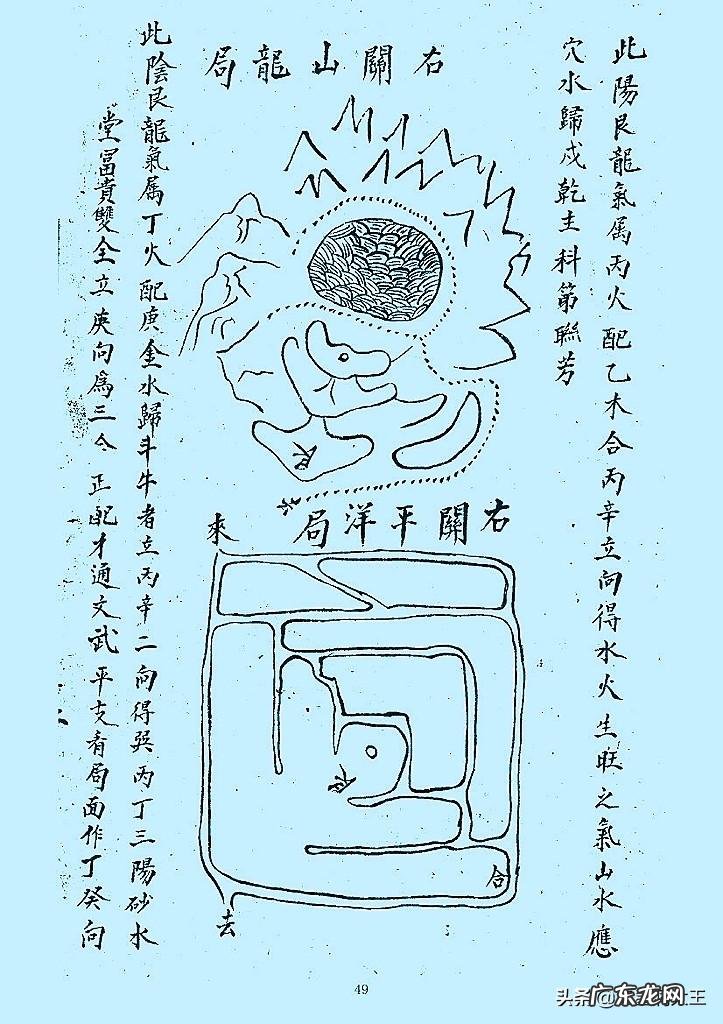 此陽艮龍氣屬丙火配乙木合丙辛立向得水火生旺之氣山水應
穴水歸戌乾主科第聯芳
右關山龍局
艮
右關平洋局
來
艮
合
去
此陰艮龍氣属丁火配庚金水歸斗牛者立丙辛二向得巽丙丁三陽砂水
堂冨貴雙全立庚向為三合正配才通文武平支看局面作丁癸向
49
头条@
广东龙网
王